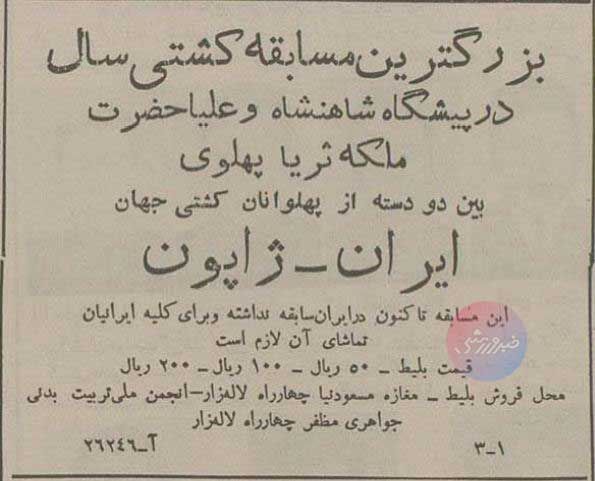 بزرگترین مسابقه کشتی سال
در پیشگاه شاهنشاه و علیا حضرت
ملکه ثریا پهلوی
بین دو دسته از پهلوانان کشتی جهان
ایران ـ ژاپون
این مسابقه تاکنون در ایران سابقه نداشته و برای کلیه ایرانیان
تماشای آن لازم است
قیمت بلیط ـ ۵۰ ریال ـ ۱۰۰ ریال ـ ۲۰۰ ریال
خبرورزشی
محل فروش بلیط ـ مغازه مسعودنیا چهارراه لاله‌زار ـ انجمن ملی تربیت بدنی
جواهری مظفر چهارراه لاله‌زار
۱ـ۳
آـ۲۶۲۴۶